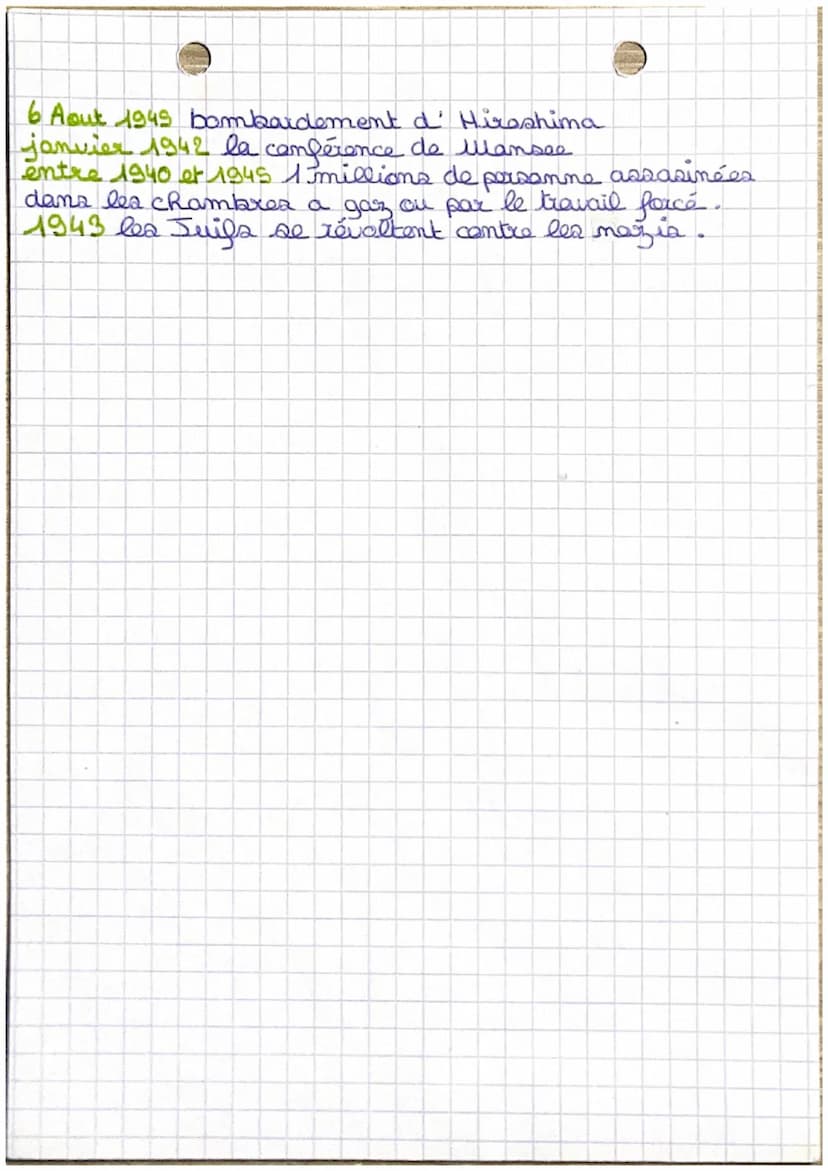 6 Aout 1945 bombardement d' Hiroshima
janvier 1942 la conférence de Wansee
entre 1940 et 1945 1 millions de personne assasinées
dans les chambres a gaz ou par le travail forcé.
1943 les Juifs se révoltent contre les nazis.